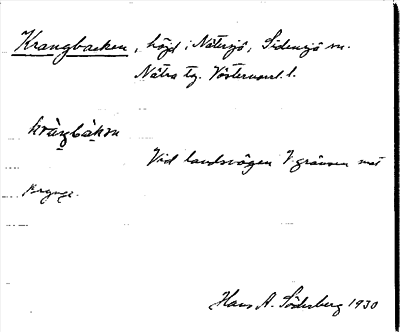 Krangbacken, höjd i Nätersjö, Sidensjö sn.
Nätra tg. Västernorrl. l.
kràŋbàkɷn
Vid landsvägen V gränsen mot
Hans A. Söderberg 1930